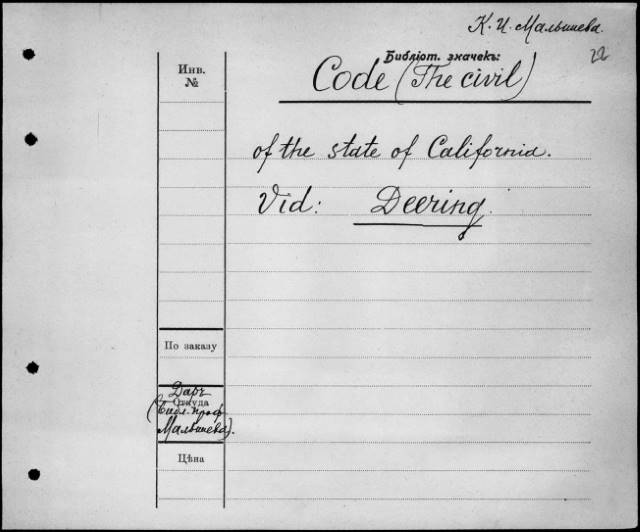 К. И. Малышева.
22
Библіот. значекъ:
Инв.
№
Code (The civil)
of the state of California.
Vid: Deering.
По заказу
Даръ
Откуда
(Библ. проф.
Малышева).
Цѣна